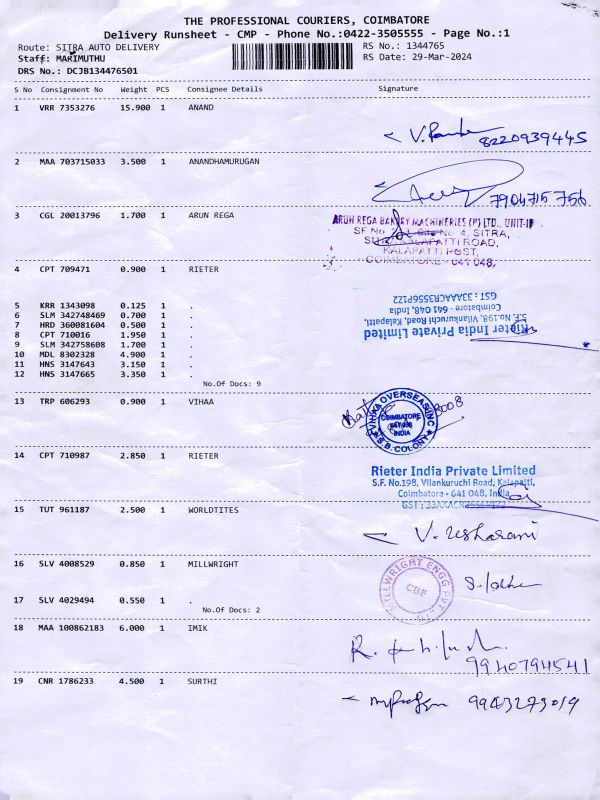 THE PROFESSIONAL COURIERS, COIMBATORE
Delivery Runsheet - CMP - Phone No.:0422-3505555 - Page No.:1
Route: SITRA AUTO DELIVERY
RS No.: 1344765
Staff: MARIMUTHU
RS Date: 29-Mar-2024
DRS No.: DCJB134476501
S No Consignment No Weight PCS Consignee Details Signature
1 VRR 7353276 15.900 1 ANAND
8220939445
2 MAA 703715033 3.500 1 ANANDHAMURUGAN
7904715756
3 CGL 20013796 1.700 1 ARUN REGA
ARUN REGA BAKERY MACHINERIES (P) LTD., UNIT-II
SF No 4, SITRA,
KALAPATTI ROAD,
KALAPATTI POST,
COIMBATORE - 641 048,
4 CPT 709471 0.900 1 RIETER
Rieter India Private Limited
S.F. No.198, Vilankuruchi Road, Kalapatti,
Coimbatore - 641 048, India
GST : 33AAACR3556P1ZZ
5 KRR 1343098 0.125 1 .
6 SLM 342748469 0.700 1 .
7 HRD 360081604 0.500 1 .
8 CPT 710016 1.950 1 .
9 SLM 342758608 1.700 1 .
10 MDL 8302328 4.900 1 .
11 HNS 3147643 3.150 1 .
12 HNS 3147665 3.350 1 .
No.Of Docs: 9
13 TRP 606293 0.900 1 VIHAA
VIHKA OVERSEAS INC
COIMBATORE
INDIA
S.B. COLONY
14 CPT 710987 2.850 1 RIETER
Rieter India Private Limited
S.F. No.198, Vilankuruchi Road, Kalapatti,
Coimbatore - 641 048, India
GST :
15 TUT 961187 2.500 1 WORLDTITES
16 SLV 4008529 0.850 1 MILLWRIGHT
MILLWRIGHT ENGG PVT LTD
CBF
17 SLV 4029494 0.550 1 .
No.Of Docs: 2
18 MAA 100862183 6.000 1 IMIK
9940794541
19 CNR 1786233 4.500 1 SURTHI
9943273019